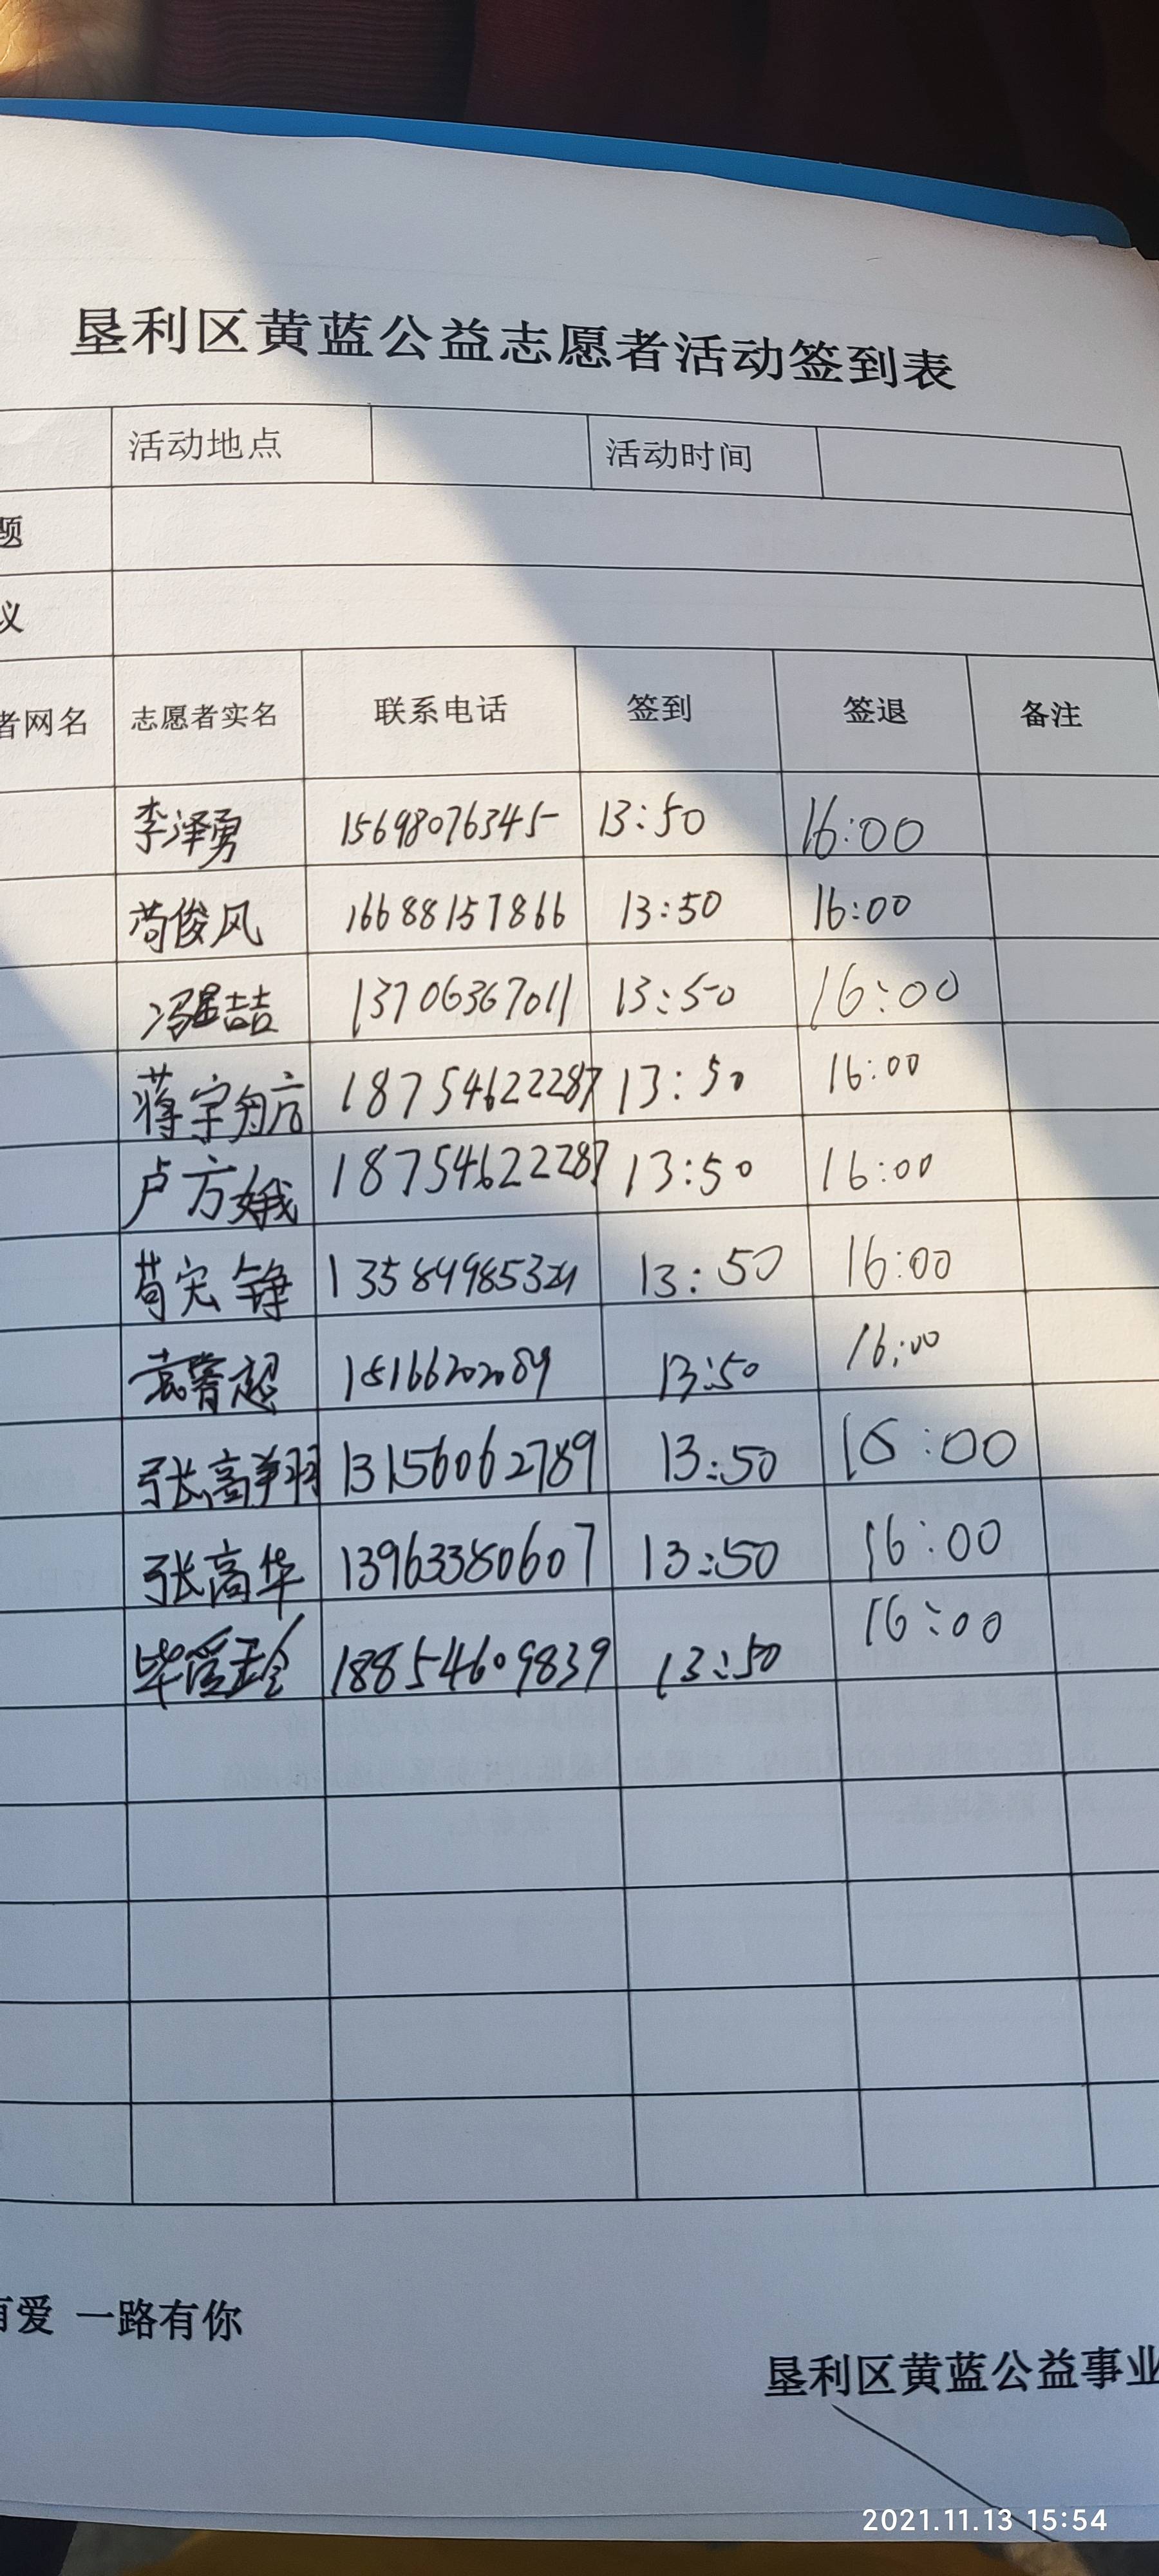 垦利区黄蓝公益志愿者活动签到表
活动地点 活动时间
题
义
者网名 志愿者实名 联系电话 签到 签退 备注
李泽勇 15698076345 13:50 16:00
苟俊风 16688157866 13:50 16:00
冯喆 13706367011 13:50 16:00
蒋宇航 18754622287 13:50 16:00
卢方娥 18754622287 13:50 16:00
苟宏铮 13:50 16:00
袁 超 13:50 16:00
张高翔 13156062789 13:50 16:00
张高华 13963380607 13:50 16:00
毕爱玲 18854609839 13:50 16:00
有爱 一路有你
垦利区黄蓝公益事业
2021.11.13 15:54